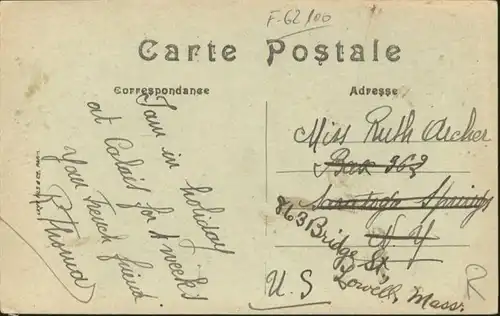 F-62/100
Carte Postale
Correspondance
Adresse
I am in holiday
at Calais for 1 week's
Your French friend
Miss Ruth Archer
Box 363
Saratoga Springs
N Y
863 Bridge St.,
Lowell, Mass.
U.S